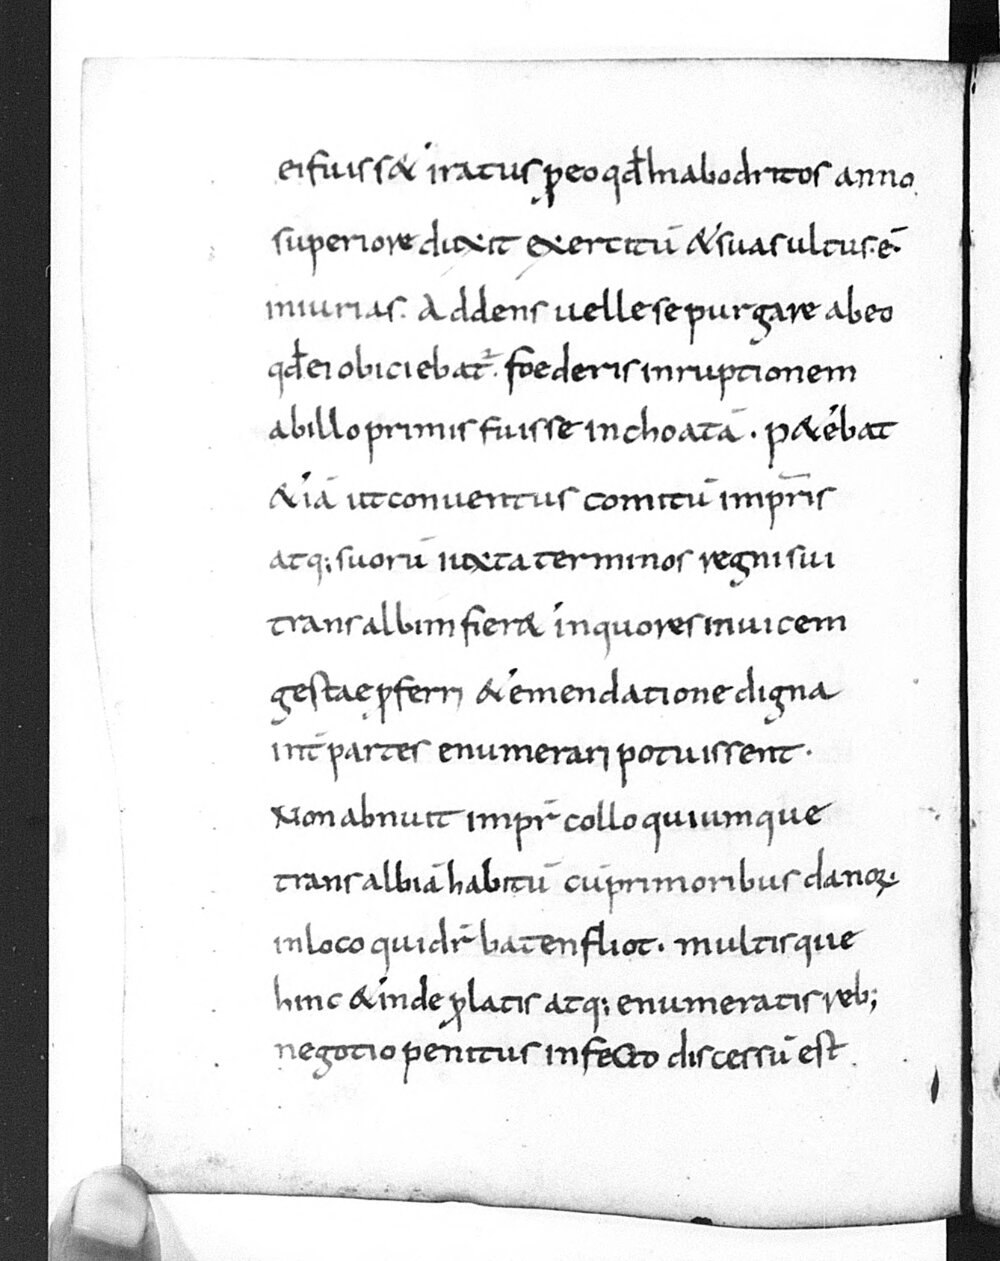 ei fuiss& iratus p eo qđ In abodritos anno
superiore duxit exercitū & suas ultus ē
iniurias. Addens uelle se purgare ab eo
qđ ei obiciebat͛. foederis inruptionem
ab illo primis fuisse inchoatā. p&ebat
&iā ut conuentus comitū impr̄is
atq; suorū iuxta terminos regni sui
trans albim fier& in quo res inuicem
gestae pferri & emendatione digna
int̄ partes enumerari potuissent.
Non abnuit impr̄ colloquiumque
trans albiā habitū cū primoribus danoꝝ.
in loco qui dr̄ batenfliot. multisque
hinc & inde platis atq; enumeratis reb;
negotio penitus infecto discessū est.